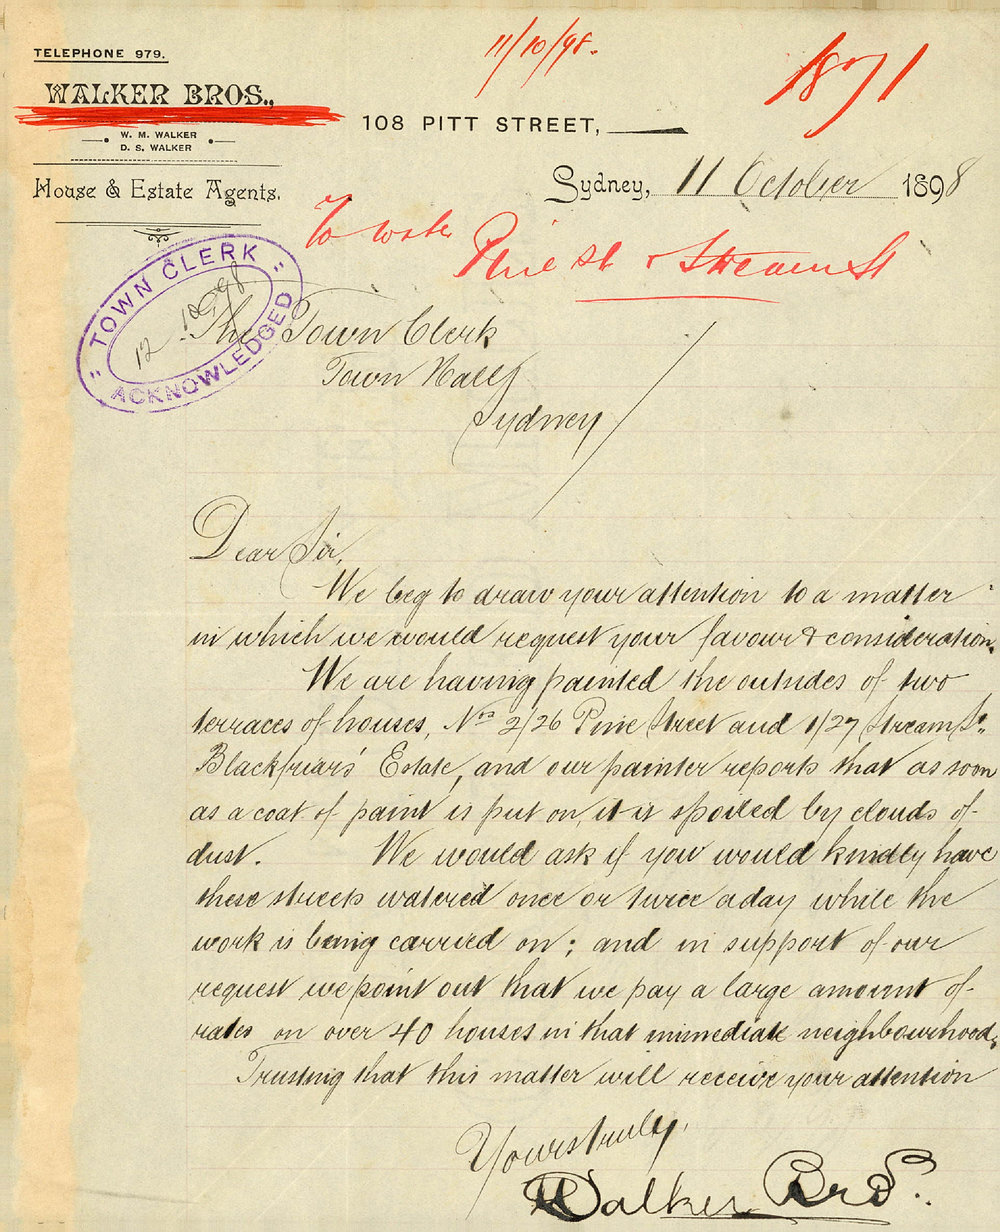 TELEPHONE 979.
WALKER BROS.,
W. M. WALKER
D. S. WALKER
House & Estate Agents.
11/10/98.
1871
108 PITT STREET,
Sydney, 11 October 1898
To water Pine St & Stream St
"TOWN CLERK"
12
ACKNOWLEDGED
The Town Clerk
Town Hall
Sydney
Dear Sir,
We beg to draw your attention to a matter
in which we would request your favour & consideration.
We are having painted the outsides of two
terraces of houses, Nos 2/26 Pine Street and 1/27 Stream St.
Blackfriars' Estate, and our painter reports that as soon
as a coat of paint is put on, it is spoiled by clouds of
dust. We would ask if you would kindly have
these streets watered once or twice a day while the
work is being carried on; and in support of our
request we point out that we pay a large amount of
rates on over 40 houses in that immediate neighbourhood.
Trusting that this matter will receive your attention
Yours truly,
Walker Bros.